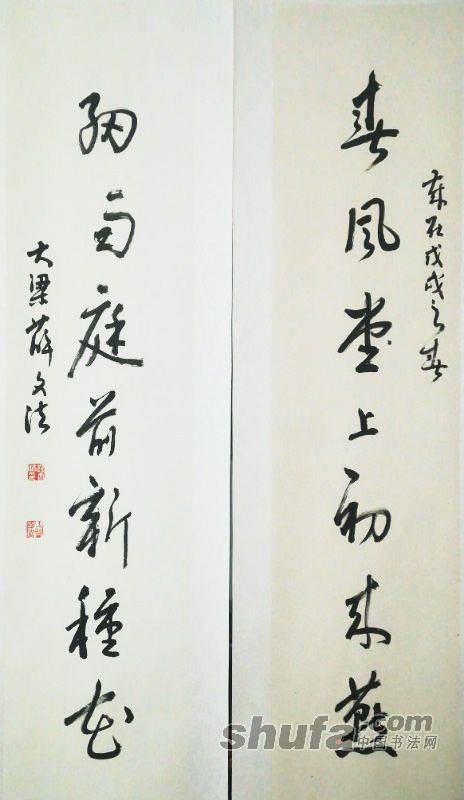 歲在戊戌之春
春風堂上初来燕
細雨庭前新種花
大梁薛文法
shufa.com
中国书法网